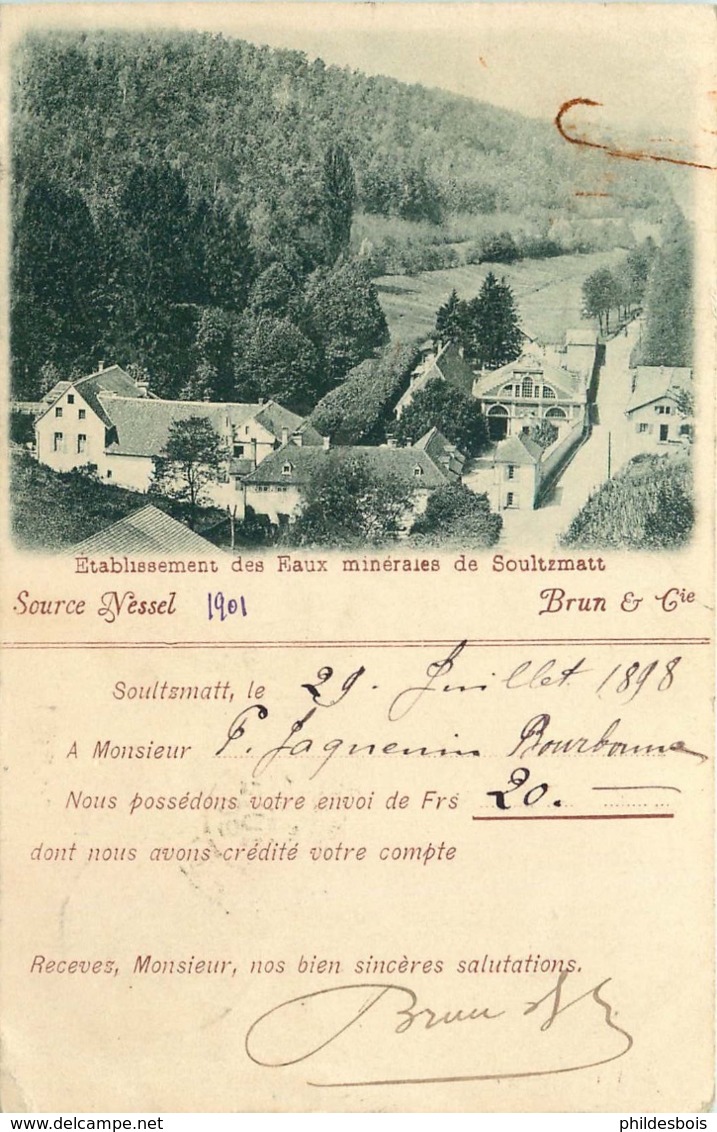 Etablissement des Eaux minérales de Soultzmatt
Source Nessel 1901 Brun & Cie
Soultzmatt, le 29. Juillet 1898
A Monsieur P. Jaquenin Bourbonne
Nous possédons votre envoi de Frs 20.—
dont nous avons crédité votre compte
Recevez, Monsieur, nos bien sincères salutations.
Brun
delcampe.net
phildesbois